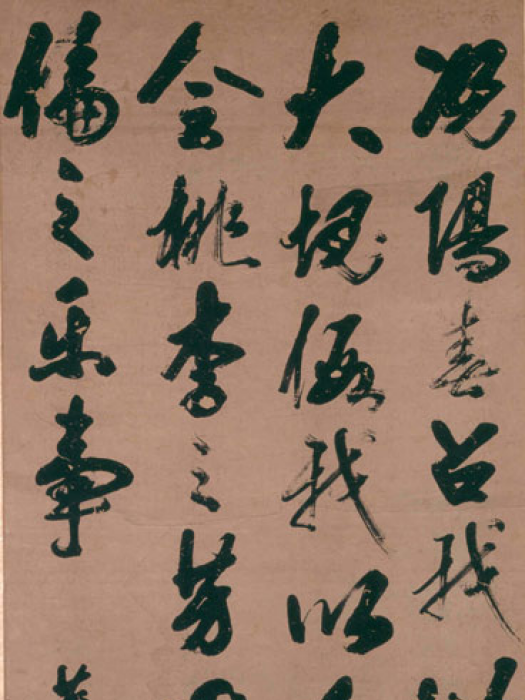 况陽春召我
大塊假我以
会桃李之芳
倫之乐事